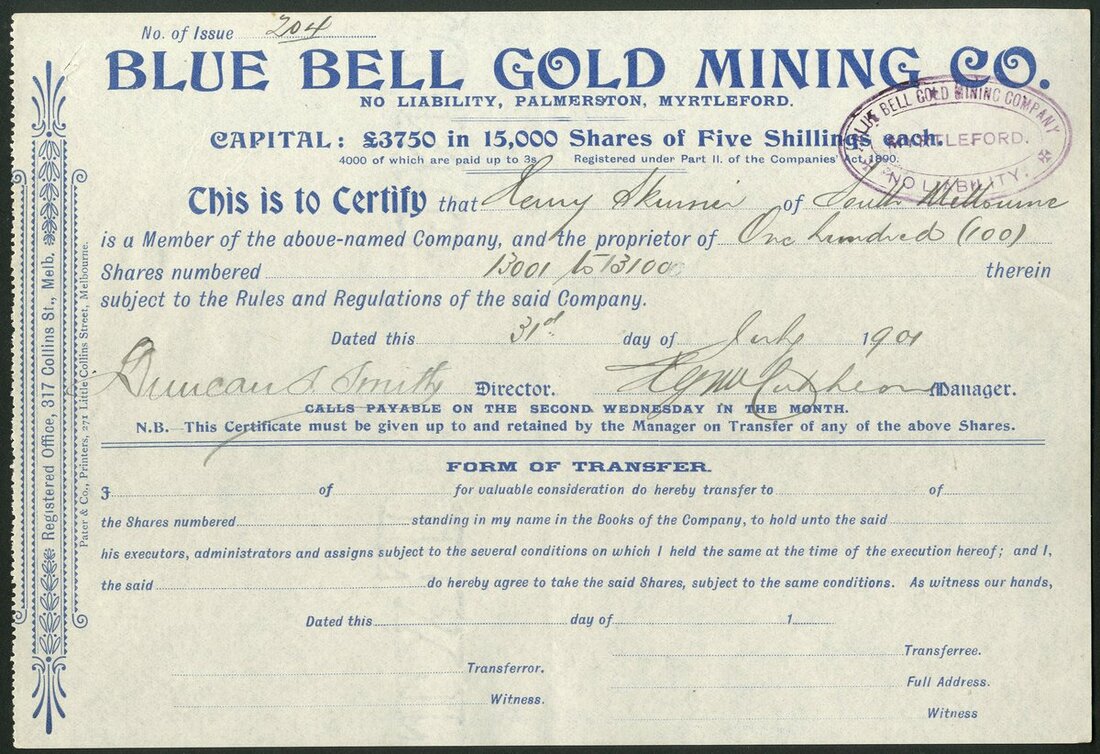 No. of Issue 204
BLUE BELL GOLD MINING CO.
NO LIABILITY, PALMERSTON, MYRTLEFORD.
CAPITAL: £3750 in 15,000 Shares of Five Shillings each.
4000 of which are paid up to 3s. Registered under Part II. of the Companies' Act, 1890.
BLUE BELL GOLD MINING COMPANY
MYRTLEFORD.
NO LIABILITY.
This is to Certify that Henry Skurrier of South Melbourne
is a Member of the above-named Company, and the proprietor of One hundred (100)
Shares numbered 13001 to 13100 therein
subject to the Rules and Regulations of the said Company.
Dated this 31st day of July 1901
Duncan S. Smith Director. Manager.
CALLS PAYABLE ON THE SECOND WEDNESDAY IN THE MONTH.
N.B.—This Certificate must be given up to and retained by the Manager on Transfer of any of the above Shares.
FORM OF TRANSFER.
I of for valuable consideration do hereby transfer to of
the Shares numbered standing in my name in the Books of the Company, to hold unto the said
his executors, administrators and assigns subject to the several conditions on which I held the same at the time of the execution hereof; and I,
the said do hereby agree to take the said Shares, subject to the same conditions. As witness our hands,
Dated this day of 1
Transferree.
Transferror.
Full Address.
Witness.
Witness
Registered Office, 317 Collins St., Melb.
Pater & Co., Printers, 271 Little Collins Street, Melbourne.